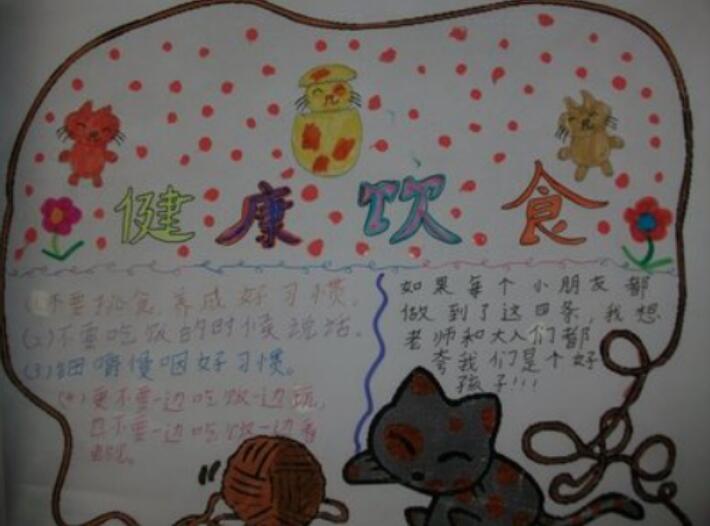 健康饮食
(1)不要挑食,养成好习惯。
(2)不要吃饭的时候说话。
(3)细嚼慢咽好习惯。
(4)更不要一边吃饭一边玩,
且不要一边吃饭一边看
如果每个小朋友都
做到了这四条,我想
老师和大人们都
夸我们是个好
孩子!!!